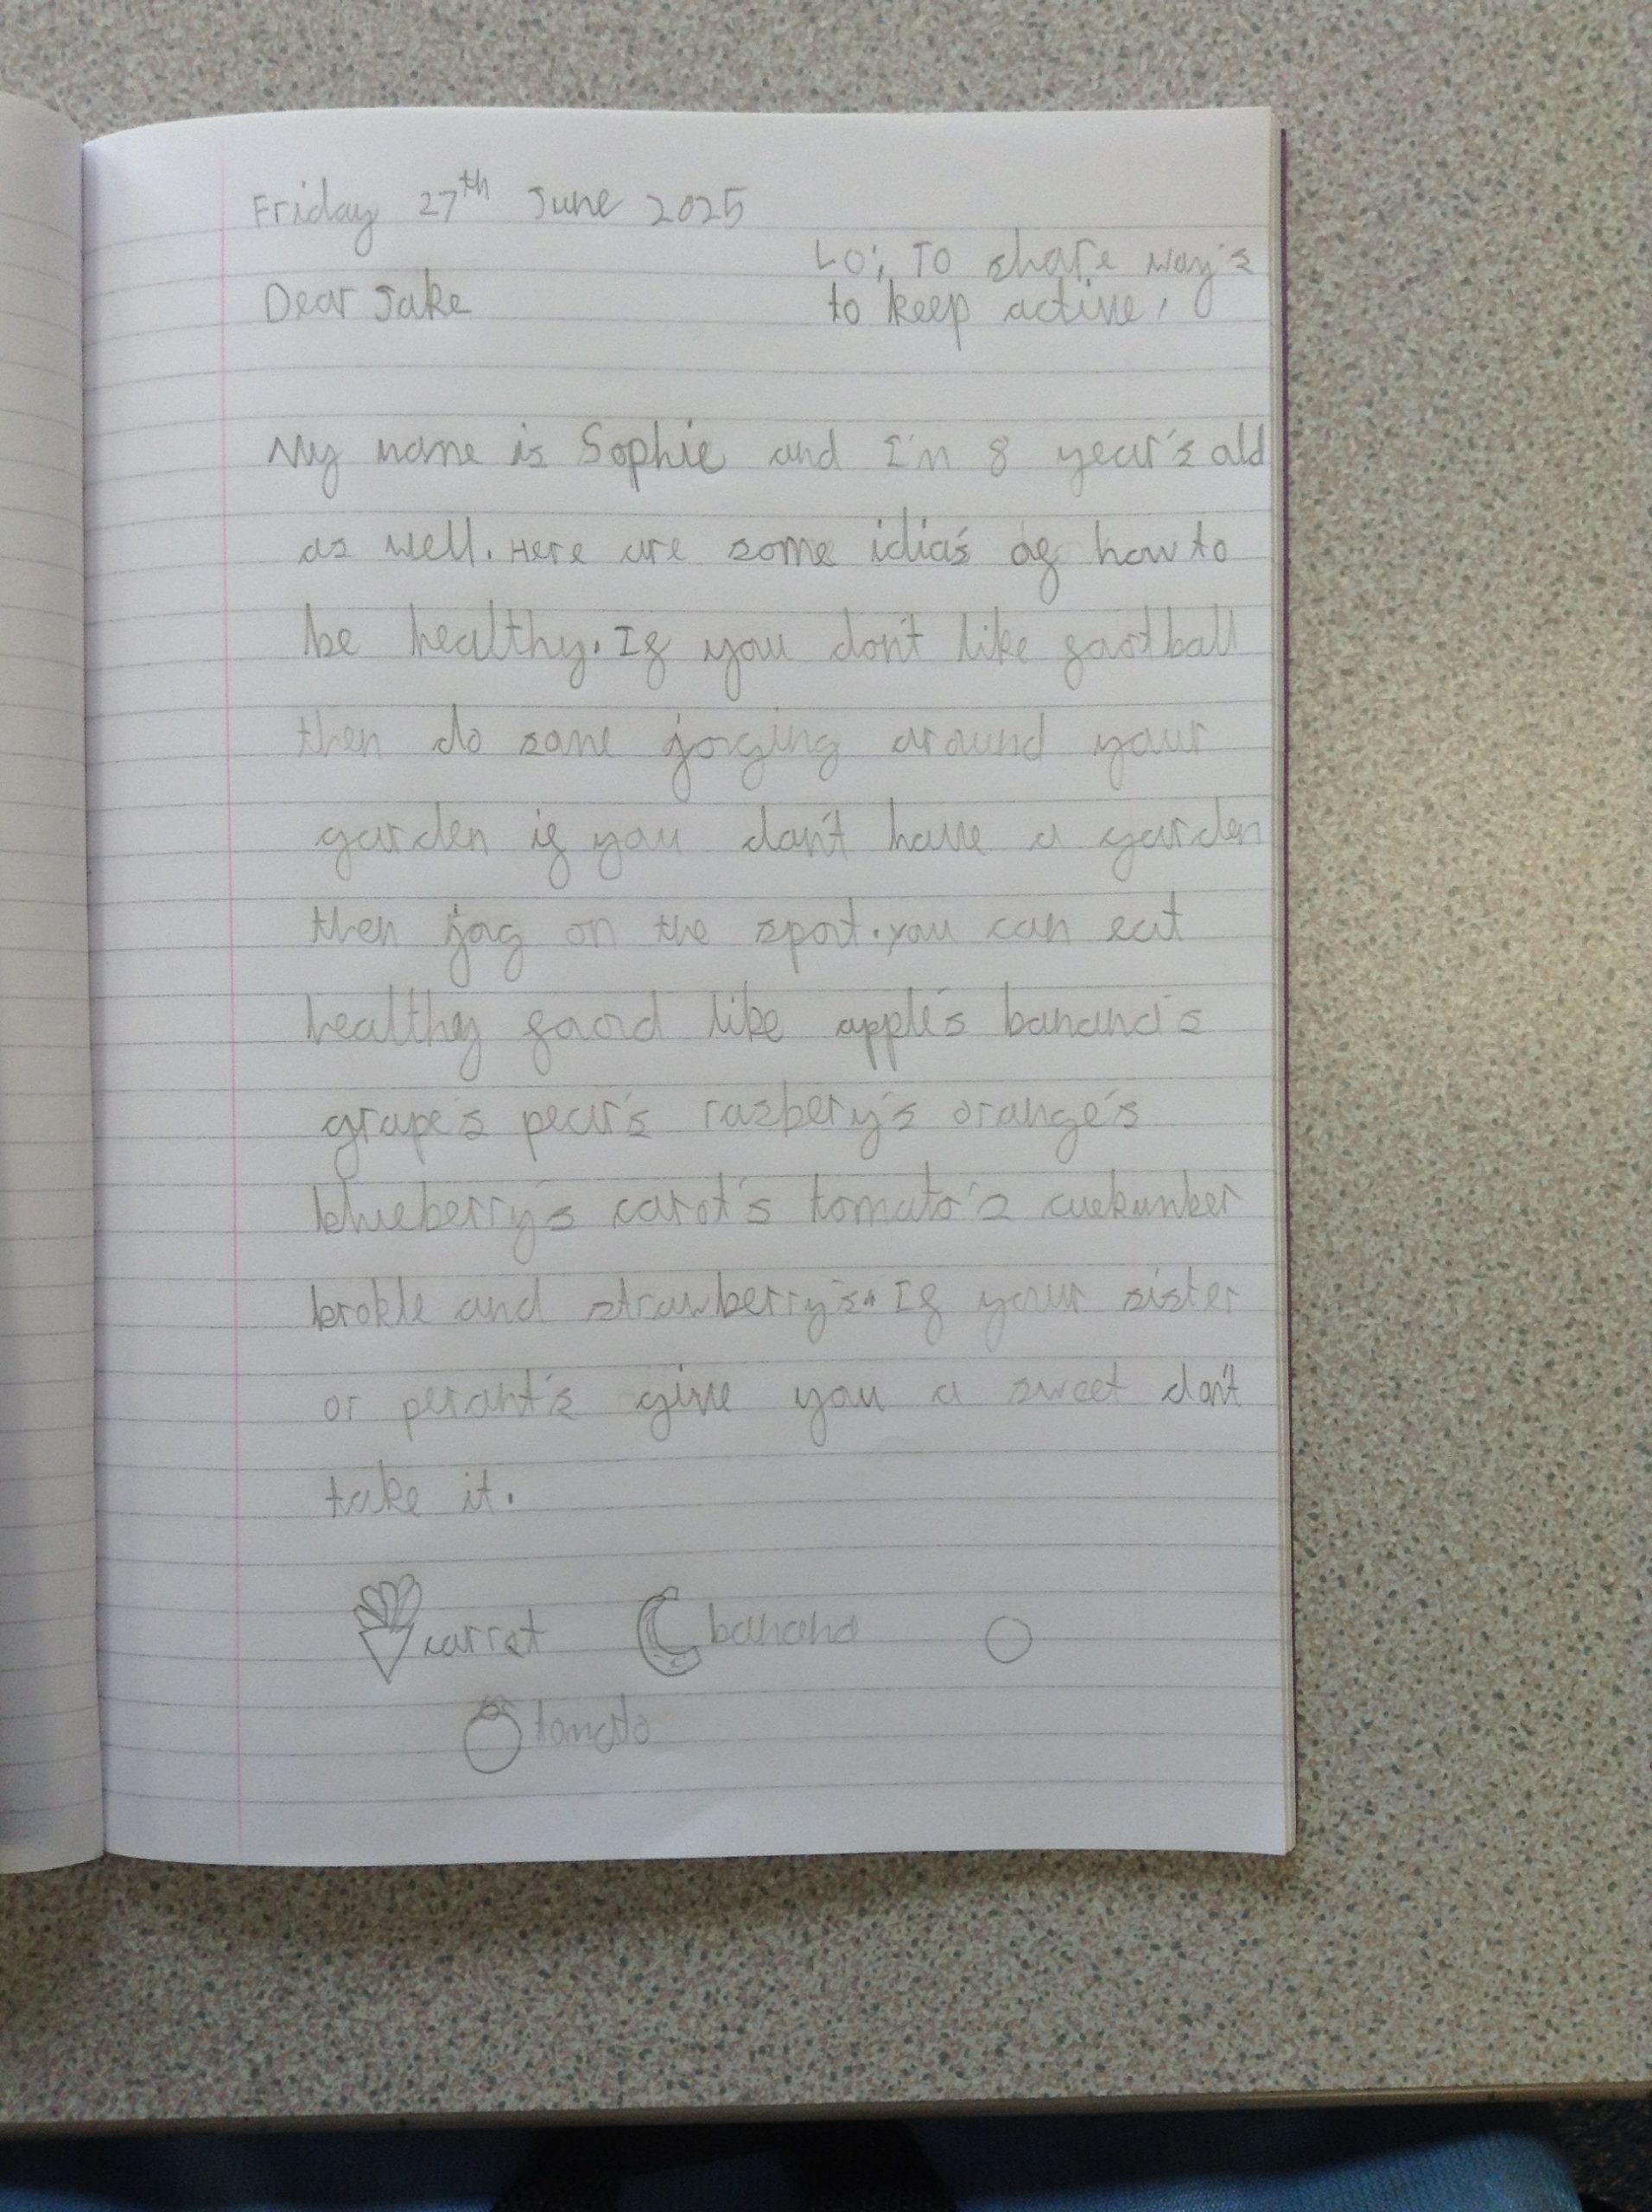 Friday 27th June 2025
LO; To share way's
to keep active.
Dear Jake
My name is Sophie and I'm 8 year's old
as well. Here are some idia's of how to
be healthy. If you don't like football
then do some joging around your
garden if you don't have a garden
then jog on the spot. you can eat
healthy food like apple's banana's
grape's pear's razbery's orange's
blueberry's carot's tomato's cuekumber
brokle and strawberry's. If your sister
or perant's give you a sweet don't
take it.
carrot banana
tomato